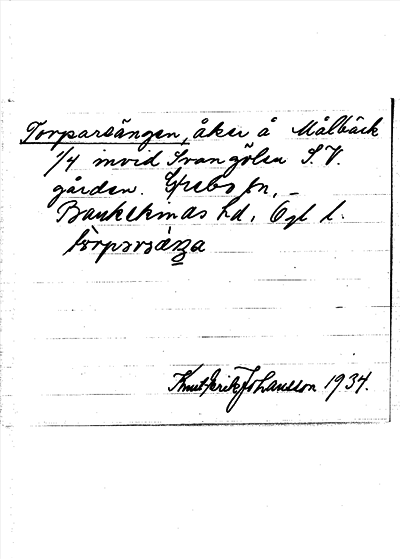 Torparsängen, åker å Målbäck
1/4 invid Svangölen S.V.
gården. Grebo sn, –
Bankekinds hd, Ögl l.
Knut Erik Johansson 1934.